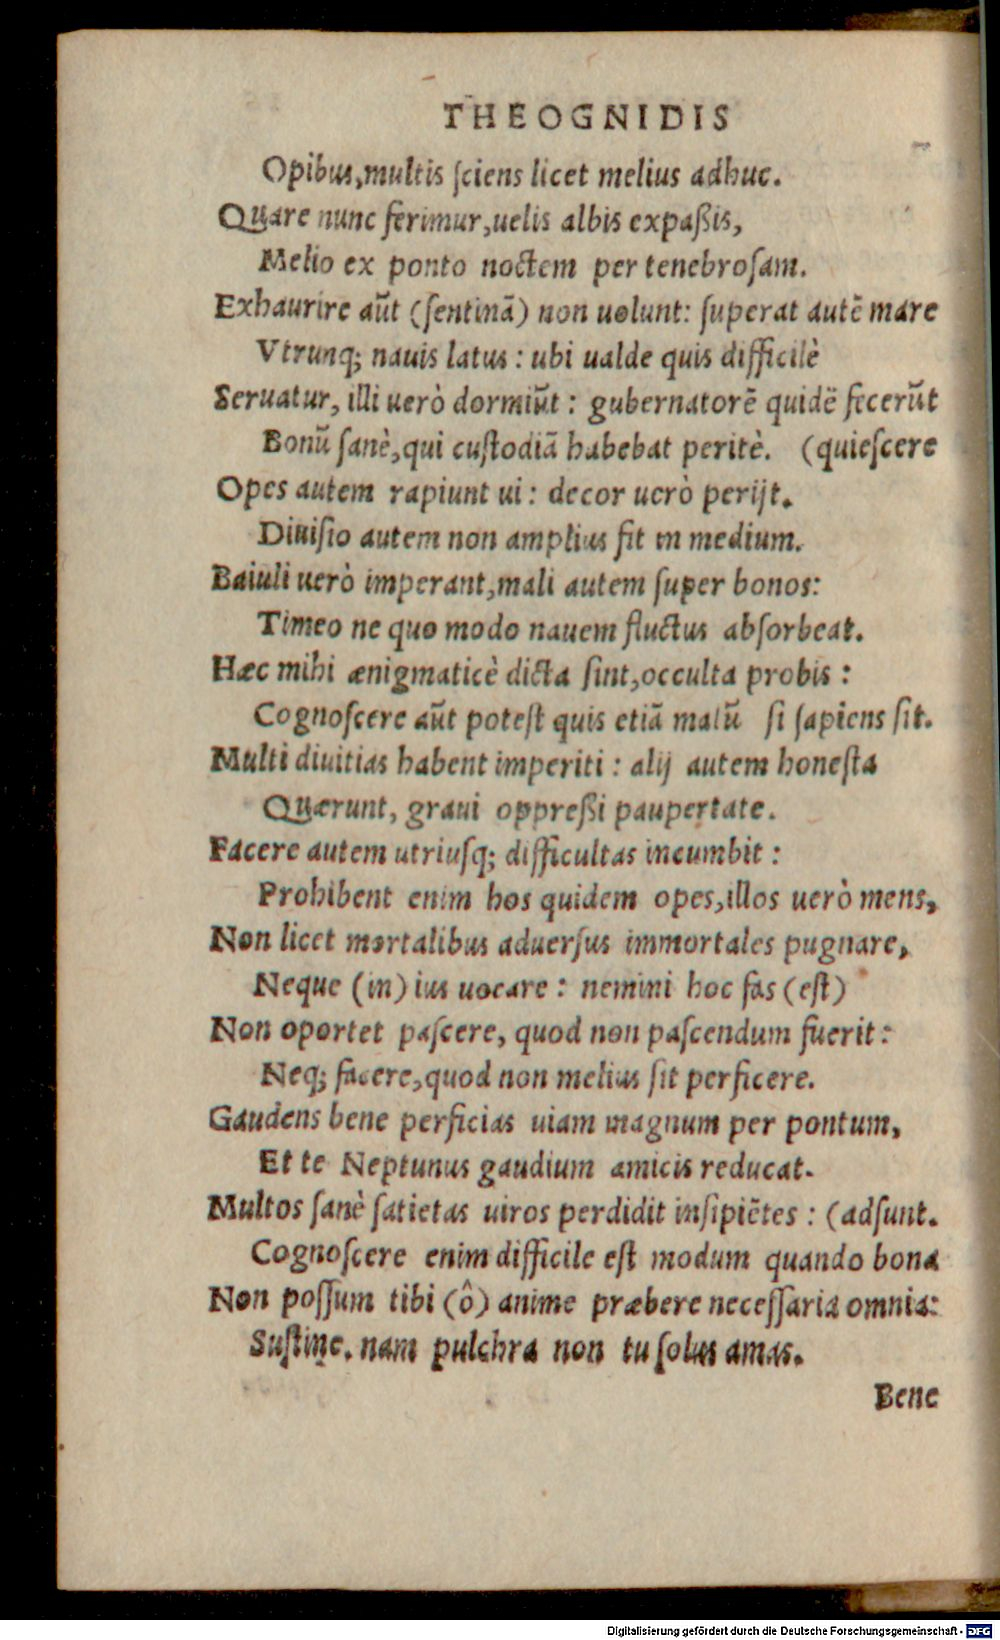 THEOGNIDIS
Opibus, multis ſciens licet melius adhuc.
Quare nunc ferimur, uelis albis expaßis,
Melio ex ponto noctem per tenebroſam.
Exhaurire aūt (ſentinā) non uolunt: ſuperat autē mare
Vtrunq; nauis latus : ubi ualde quis difficilè
Seruatur, illi uerò dormiūt : gubernatorē quidē fecerūt
Bonū ſanè, qui cuſtodiā habebat peritè. (quieſcere
Opes autem rapiunt ui : decor uerò perijt.
Diuiſio autem non amplius fit in medium.
Baiuli uerò imperant, mali autem ſuper bonos:
Timeo ne quo modo nauem fluctus abſorbeat.
Hæc mihi ænigmaticè dicta ſint, occulta probis :
Cognoſcere aūt poteſt quis etiā malū ſi ſapiens ſit.
Multi diuitias habent imperiti : alij autem honeſta
Quærunt, graui oppreßi paupertate.
Facere autem utriuſq; difficultas incumbit :
Prohibent enim hos quidem opes, illos uerò mens,
Non licet mortalibus aduerſus immortales pugnare,
Neque (in) ius uocare : nemini hoc fas (eſt)
Non oportet paſcere, quod non paſcendum fuerit :
Neq; facere, quod non melius ſit perficere.
Gaudens bene perficias uiam magnum per pontum,
Et te Neptunus gaudium amicis reducat.
Multos ſanè ſatietas uiros perdidit inſipiētes : (adſunt.
Cognoſcere enim difficile eſt modum quando bona
Non poſſum tibi (ô) anime præbere neceſſaria omnia:
Suſtine. nam pulchra non tu ſolus amas.
Bene
Digitalisierung gefördert durch die Deutsche Forschungsgemeinschaft - DFG